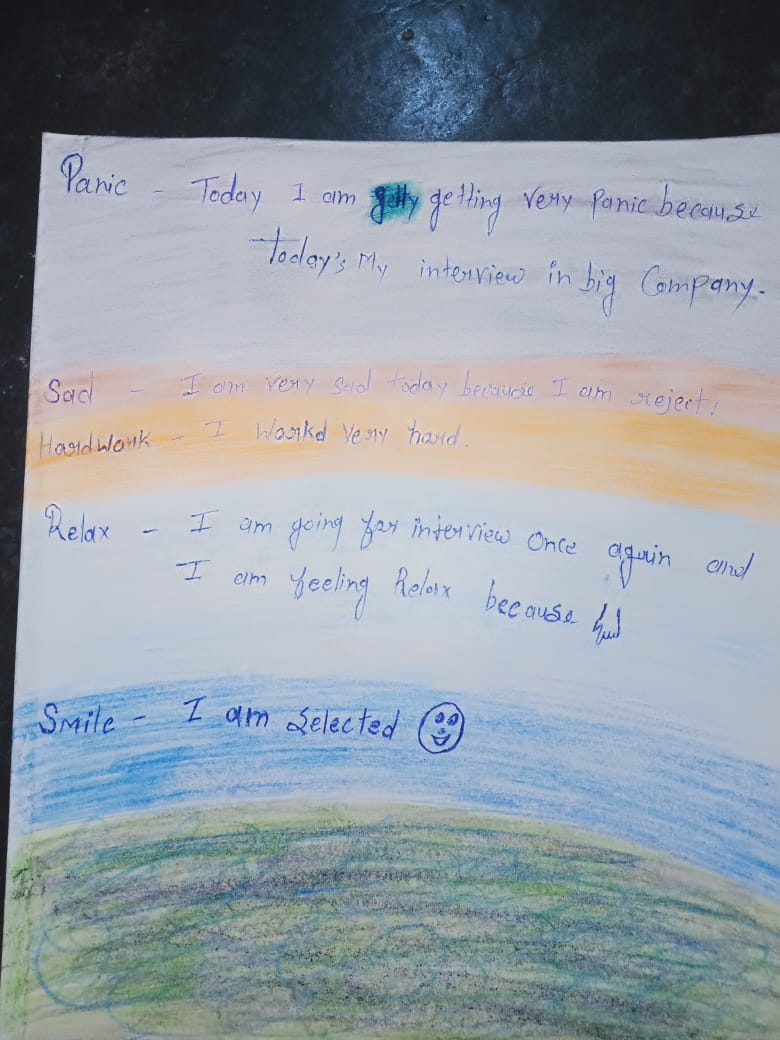 Panic - Today I am getting very panic because
today's My interview in big Company.
Sad - I am very sad today because I am reject!
Hardwork - I Workd very hard.
Relax - I am going for interview once again and
I am feeling Relax because
Smile - I am Selected